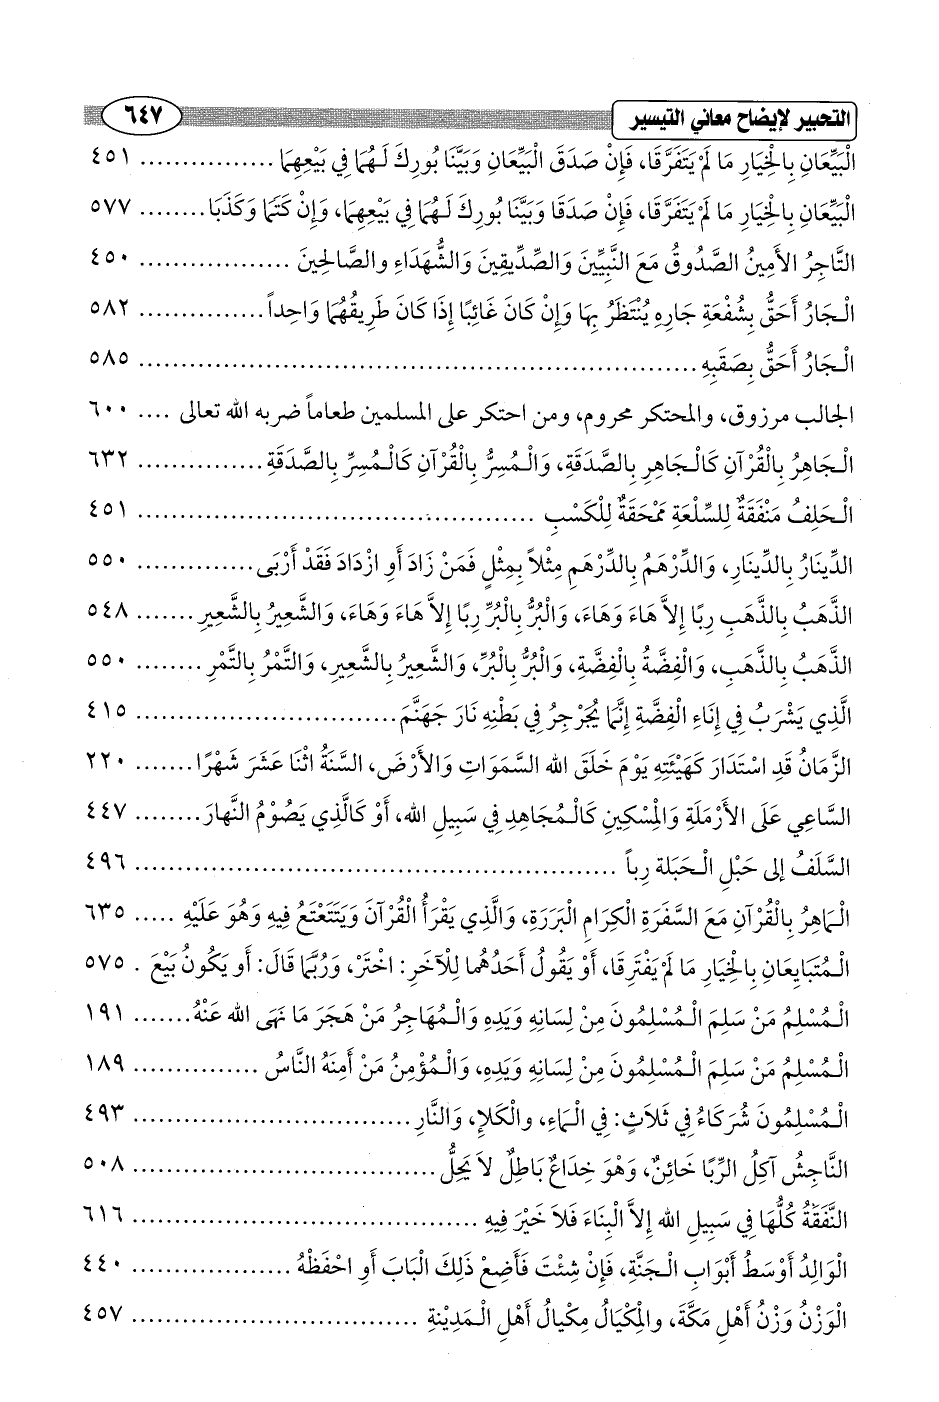 التحبير لإيضاح معاني التيسير ٦٤٧
الْبَيِّعَانِ بِالْخِيَارِ مَا لَمْ يَتَفَرَّقَا، فَإِنْ صَدَقَ الْبَيِّعَانِ وَبَيَّنَا بُورِكَ لَهُمَا فِي بَيْعِهِمَا ................ ٤٥١
الْبَيِّعَانِ بِالْخِيَارِ مَا لَمْ يَتَفَرَّقَا، فَإِنْ صَدَقَا وَبَيَّنَا بُورِكَ لَهُمَا فِي بَيْعِهِمَا، وَإِنْ كَتَمَا وَكَذَبَا ........ ٥٧٧
التَّاجِرُ الأَمِينُ الصَّدُوقُ مَعَ النَّبِيِّينَ وَالصِّدِّيقِينَ وَالشُّهَدَاءِ والصَّالحِينَ .................. ٤٥٠
الْجَارُ أَحَقُّ بِشُفْعَةِ جَارِهِ يُنْتَظَرُ بِهَا وَإِنْ كَانَ غَائِبًا إِذَا كَانَ طَرِيقُهُمَا وَاحِداً ............... ٥٨٢
الْجَارُ أَحَقُّ بِصَقَبِهِ ................................................................. ٥٨٥
الجالب مرزوق، والمحتكر محروم، ومن احتكر على المسلمين طعاماً ضربه الله تعالى .... ٦٠٠
الْجَاهِرُ بِالْقُرْآنِ كَالْجَاهِرِ بِالصَّدَقَةِ، وَالْمُسِرُّ بِالْقُرْآنِ كَالْمُسِرِّ بِالصَّدَقَةِ ............... ٦٣٢
الْحَلِفُ مَنْفَقَةٌ لِلسِّلْعَةِ مَمْحَقَةٌ لِلْكَسْبِ ............................................... ٤٥١
الدِّينَارُ بِالدِّينَارِ، وَالدِّرْهَمُ بِالدِّرْهَمِ مِثْلاً بِمِثْلٍ فَمَنْ زَادَ أَوِ ازْدَادَ فَقَدْ أَرْبَى .............. ٥٥٠
الذَّهَبُ بِالذَّهَبِ رِبًا إِلاَّ هَاءَ وَهَاءَ، وَالْبُرُّ بِالْبُرِّ رِبًا إِلاَّ هَاءَ وَهَاءَ، وَالشَّعِيرُ بِالشَّعِيرِ ....... ٥٤٨
الذَّهَبُ بِالذَّهَبِ، وَالْفِضَّةُ بِالْفِضَّةِ، وَالْبُرُّ بِالْبُرِّ، وَالشَّعِيرُ بِالشَّعِيرِ، وَالتَّمْرُ بِالتَّمْرِ ........ ٥٥٠
الَّذِي يَشْرَبُ فِي إِنَاءِ الْفِضَّةِ إِنَّمَا يُجَرْجِرُ فِي بَطْنِهِ نَارَ جَهَنَّمَ ............................... ٤١٥
الزَّمَانُ قَدِ اسْتَدَارَ كَهَيْئَتِهِ يَوْمَ خَلَقَ الله السَّمَوَاتِ وَالأَرْضَ، السَّنَةُ اثْنَا عَشَرَ شَهْرًا ....... ٢٢٠
السَّاعِي عَلَى الأَرْمَلَةِ وَالْمِسْكِينِ كَالْمُجَاهِدِ فِي سَبِيلِ الله، أَوْ كَالَّذِي يَصُوْمُ النَّهارَ ........ ٤٤٧
السَّلَفُ إلى حَبَلِ الْحَبَلة رِباً ......................................................... ٤٩٦
الْمَاهِرُ بِالْقُرْآنِ مَعَ السَّفَرَةِ الْكِرَامِ الْبَرَرَةِ، وَالَّذِي يَقْرَأُ الْقُرْآنَ وَيَتَتَعْتَعُ فِيهِ وَهُوَ عَلَيْهِ ..... ٦٣٥
الْمُتَبَايِعَانِ بِالْخِيَارِ مَا لَمْ يَفْتَرِقَا، أَوْ يَقُولُ أَحَدُهُما لِلْآخَرِ: اخْتَرْ، وَرُبَّمَا قَالَ: أَو يَكُونُ بَيْعَ . ٥٧٥
الْمُسْلِمُ مَنْ سَلِمَ الْمُسْلِمُونَ مِنْ لِسَانِهِ وَيَدِهِ وَالْمُهَاجِرُ مَنْ هَجَرَ مَا نَهَى الله عَنْهُ ....... ١٩١
الْمُسْلِمُ مَنْ سَلِمَ الْمُسْلِمُونَ مِنْ لِسَانِهِ وَيَدِهِ، وَالْمُؤْمِنُ مَنْ أَمِنَهُ النَّاسُ ............... ١٨٩
الْمُسْلِمُونَ شُرَكَاءُ فِي ثَلاَثٍ: فِي الْمَاءِ، والْكَلإِ، وَالنَّارِ ................................. ٤٩٣
النَّاجِشُ آكِلُ الرِّبَا خَائِنٌ، وَهْوَ خِدَاعٌ بَاطِلٌ لاَ يَحِلُّ .................................... ٥٠٨
النَّفَقَةُ كُلُّهَا فِي سَبِيلِ الله إِلاَّ الْبِنَاءَ فَلاَ خَيْرَ فِيهِ ......................................... ٦١٦
الْوَالِدُ أَوْسَطُ أَبْوَابِ الْجَنَّةِ، فَإِنْ شِئْتَ فَأَضِعْ ذَلِكَ الْبَابَ أَوِ احْفَظْهُ ................... ٤٤٠
الْوَزْنُ وَزْنُ أَهْلِ مَكَّةَ، والْمِكْيَالُ مِكْيَالُ أَهْلِ الْمَدِيْنَةِ .................................. ٤٥٧